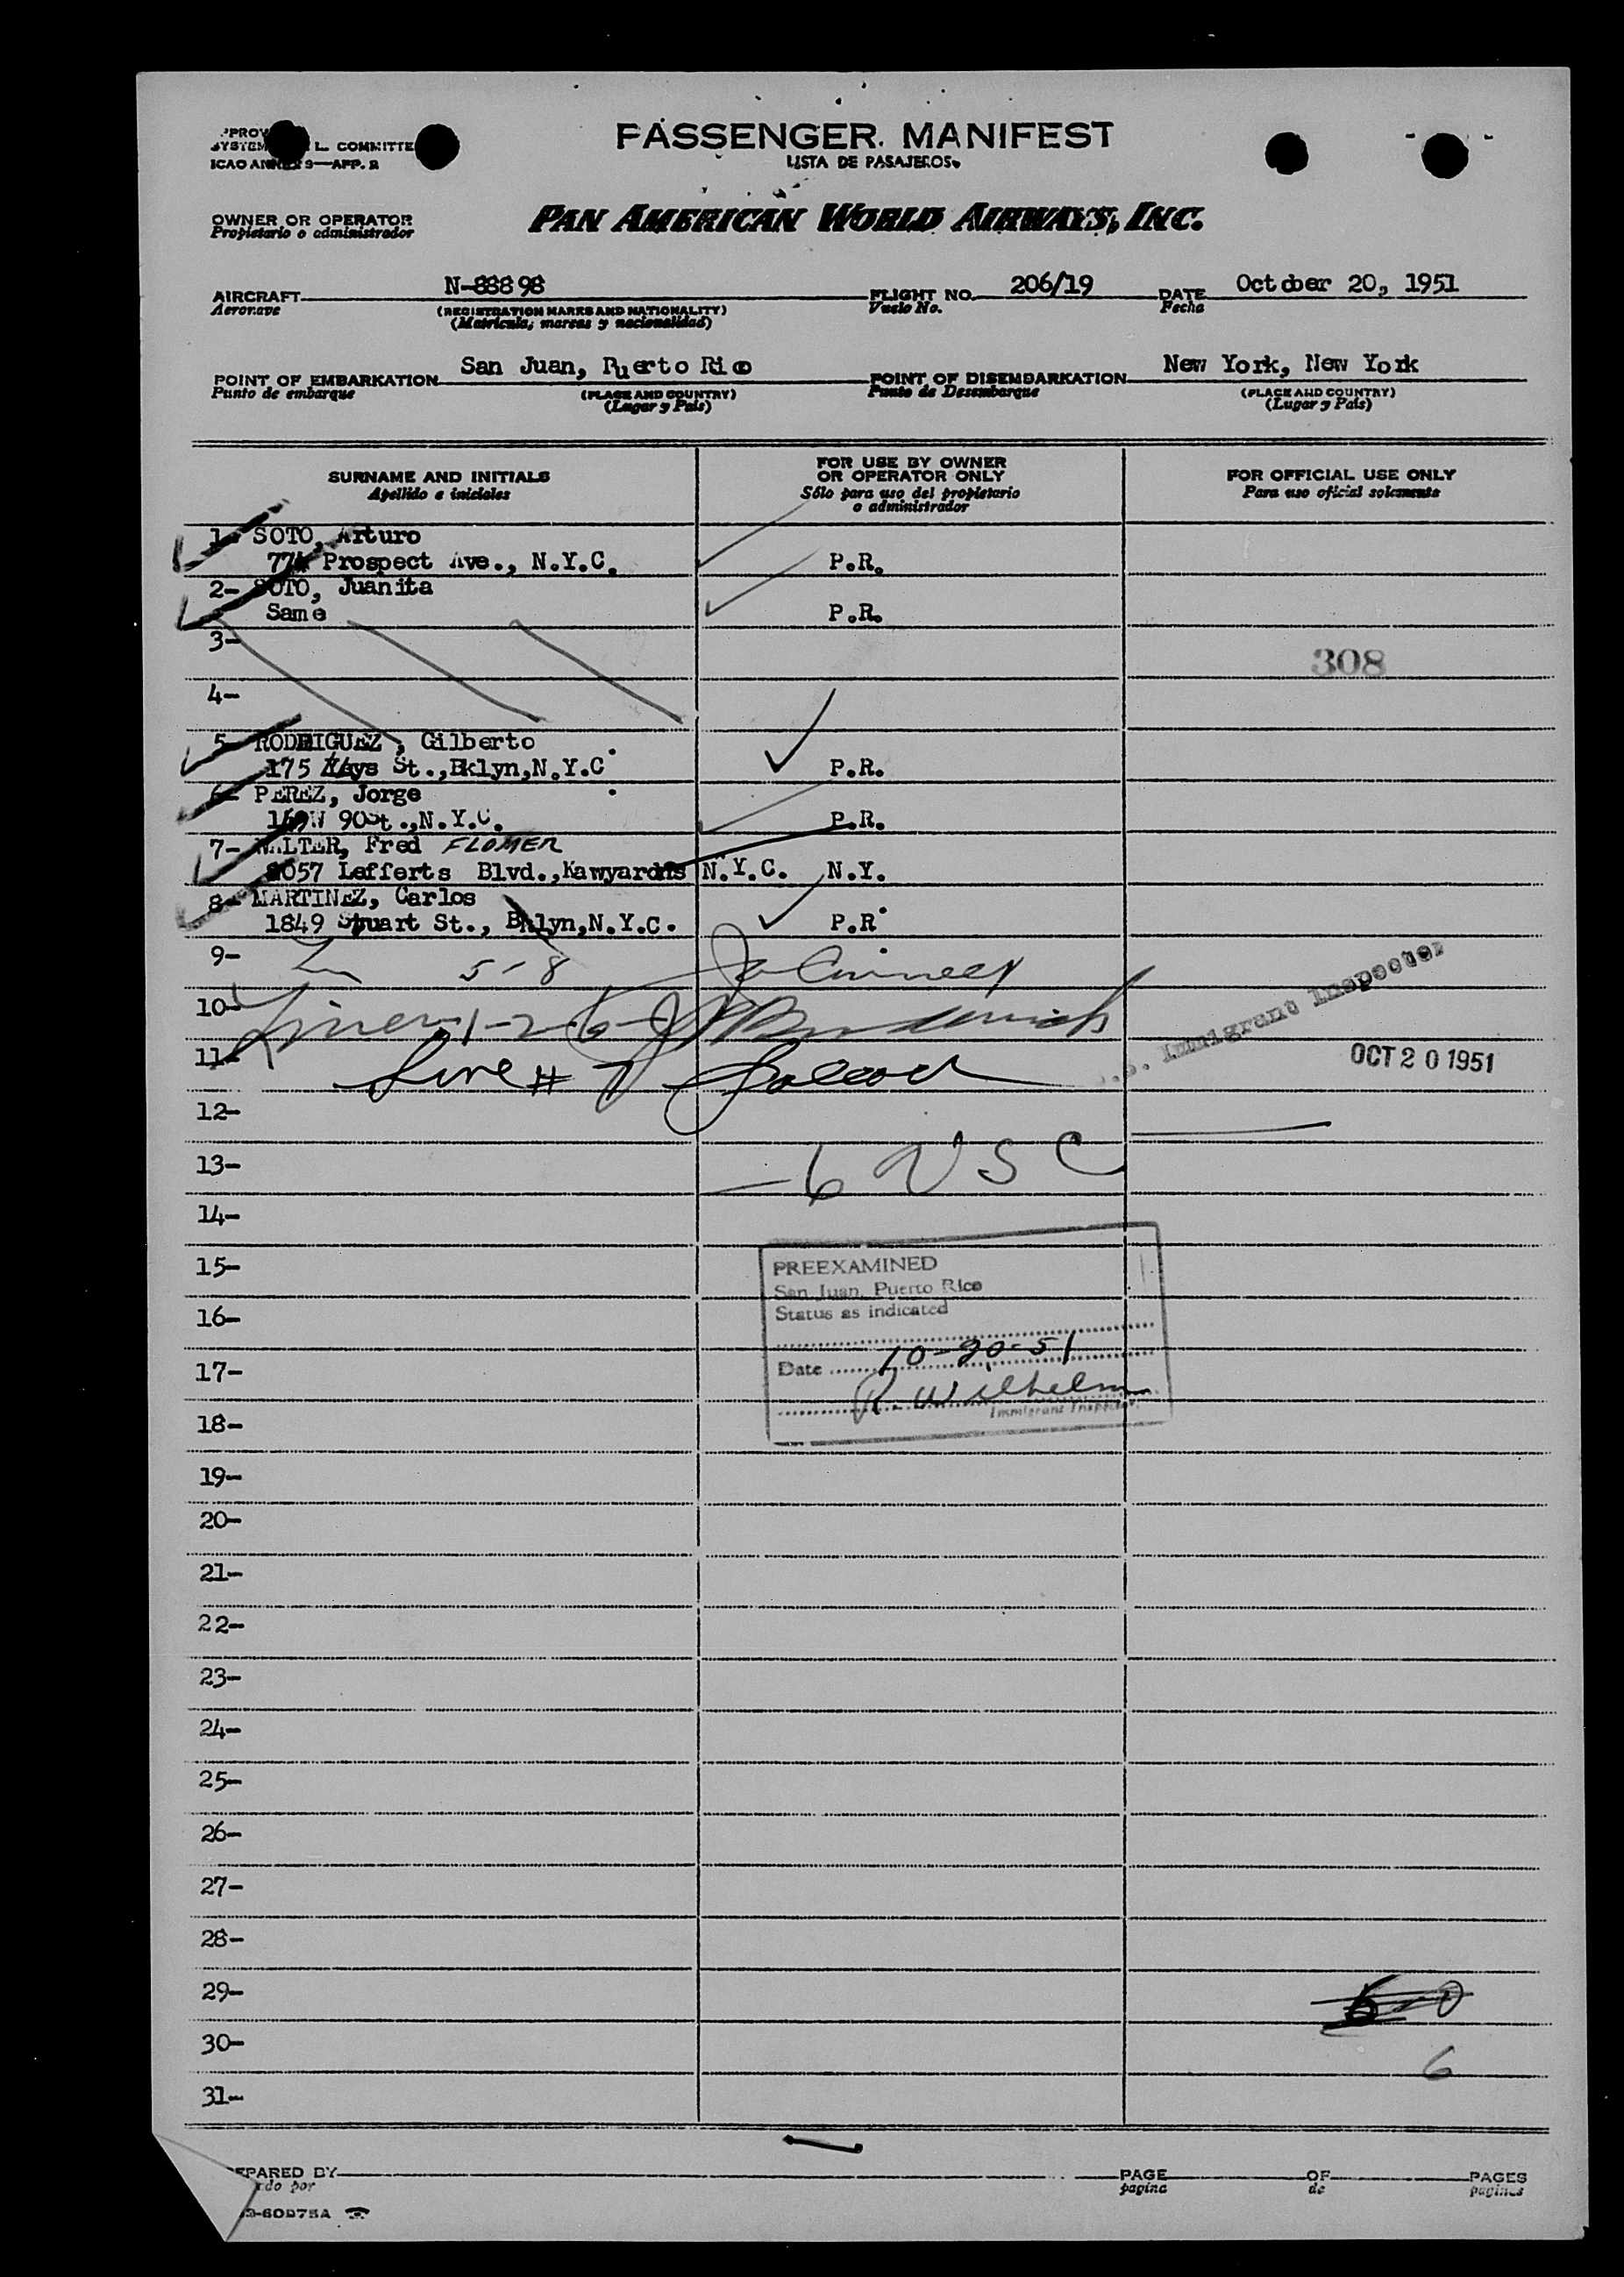 PASSENGER. MANIFEST
LISTA DE PASAJEROS
L. COMMITTE
ICAO ANNEX 9—APP. 2
OWNER OR OPERATOR
Propietario o administrador
PAN AMERICAN WORLD AIRWAYS, INC.
AIRCRAFT N-88898 FLIGHT NO. 206/19 DATE October 20, 1951
Aeronave (REGISTRATION MARKS AND NATIONALITY) Vuelo No. Fecha
(Matricula; marcas y nacionalidad)
POINT OF EMBARKATION San Juan, Puerto Rico POINT OF DISEMBARKATION New York, New York
Punto de embarque (PLACE AND COUNTRY) Punto de Desembarque (PLACE AND COUNTRY)
(Lugar y País) (Lugar y País)
SURNAME AND INITIALS
Apellido e iniciales
FOR USE BY OWNER
OR OPERATOR ONLY
Sólo para uso del propietario
o administrador
FOR OFFICIAL USE ONLY
Para uso oficial solamente
1- SOTO, Arturo
Prospect Ave., N.Y.C. P.R.
2- SOTO, Juanita
Same P.R.
3-
308
4-
5- RODRIGUEZ, Gilberto
175 Hays St.,Bklyn,N.Y.C P.R.
6- PEREZ, Jorge
90St.,N.Y.C. P.R.
7- WALTER, Fred FLOMER
Lefferts Blvd., N.Y.C. N.Y.
8- MARTINEZ, Carlos
1849 Stuart St., Bklyn,N.Y.C. P.R
9- 5-8
10- 1-2-6-
11- Line # 7
Immigrant Inspector
OCT 20 1951
12-
13- 6 USC
14-
15-
16-
17-
18-
PREEXAMINED
San Juan, Puerto Rico
Status as indicated
Date 10-20-51
R. Wilhelm
Immigrant Inspector.
19-
20-
21-
22-
23-
24-
25-
26-
27-
28-
29-
30- 6
31-
PREPARED BY PAGE OF PAGES
do por pagina de paginas
-60D75A